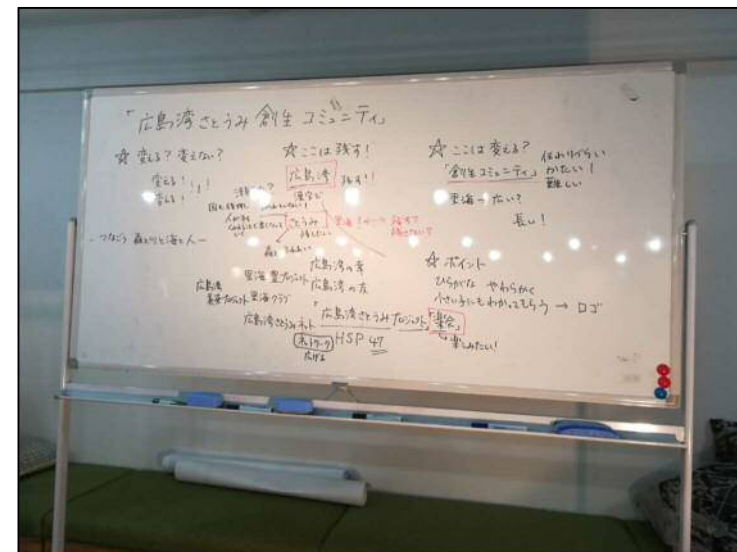 「広島湾さとうみ創生コミュニティ」
☆ 変える？変えない？
変える！
変える！
つなごう 森と川と海と人
☆ ここは残す！
広島湾 残す！！
漢字で
さとうみ
里海！
残す？
広島湾の幸
里海 豊プロジェクト 広島湾の友
広島湾
里海クラブ
「広島湾さとうみプロジェクト」「楽会」
広島湾さとうみネット
ネットワーク HSP 47
広げる
楽しみたい！
☆ ここは変える？
「創生コミュニティ」
伝わりづらい
かたい！
難しい
里海→広い？
長い！
☆ ポイント
ひらがな やわらかく
小さい子にもわかってもらう → ロゴ